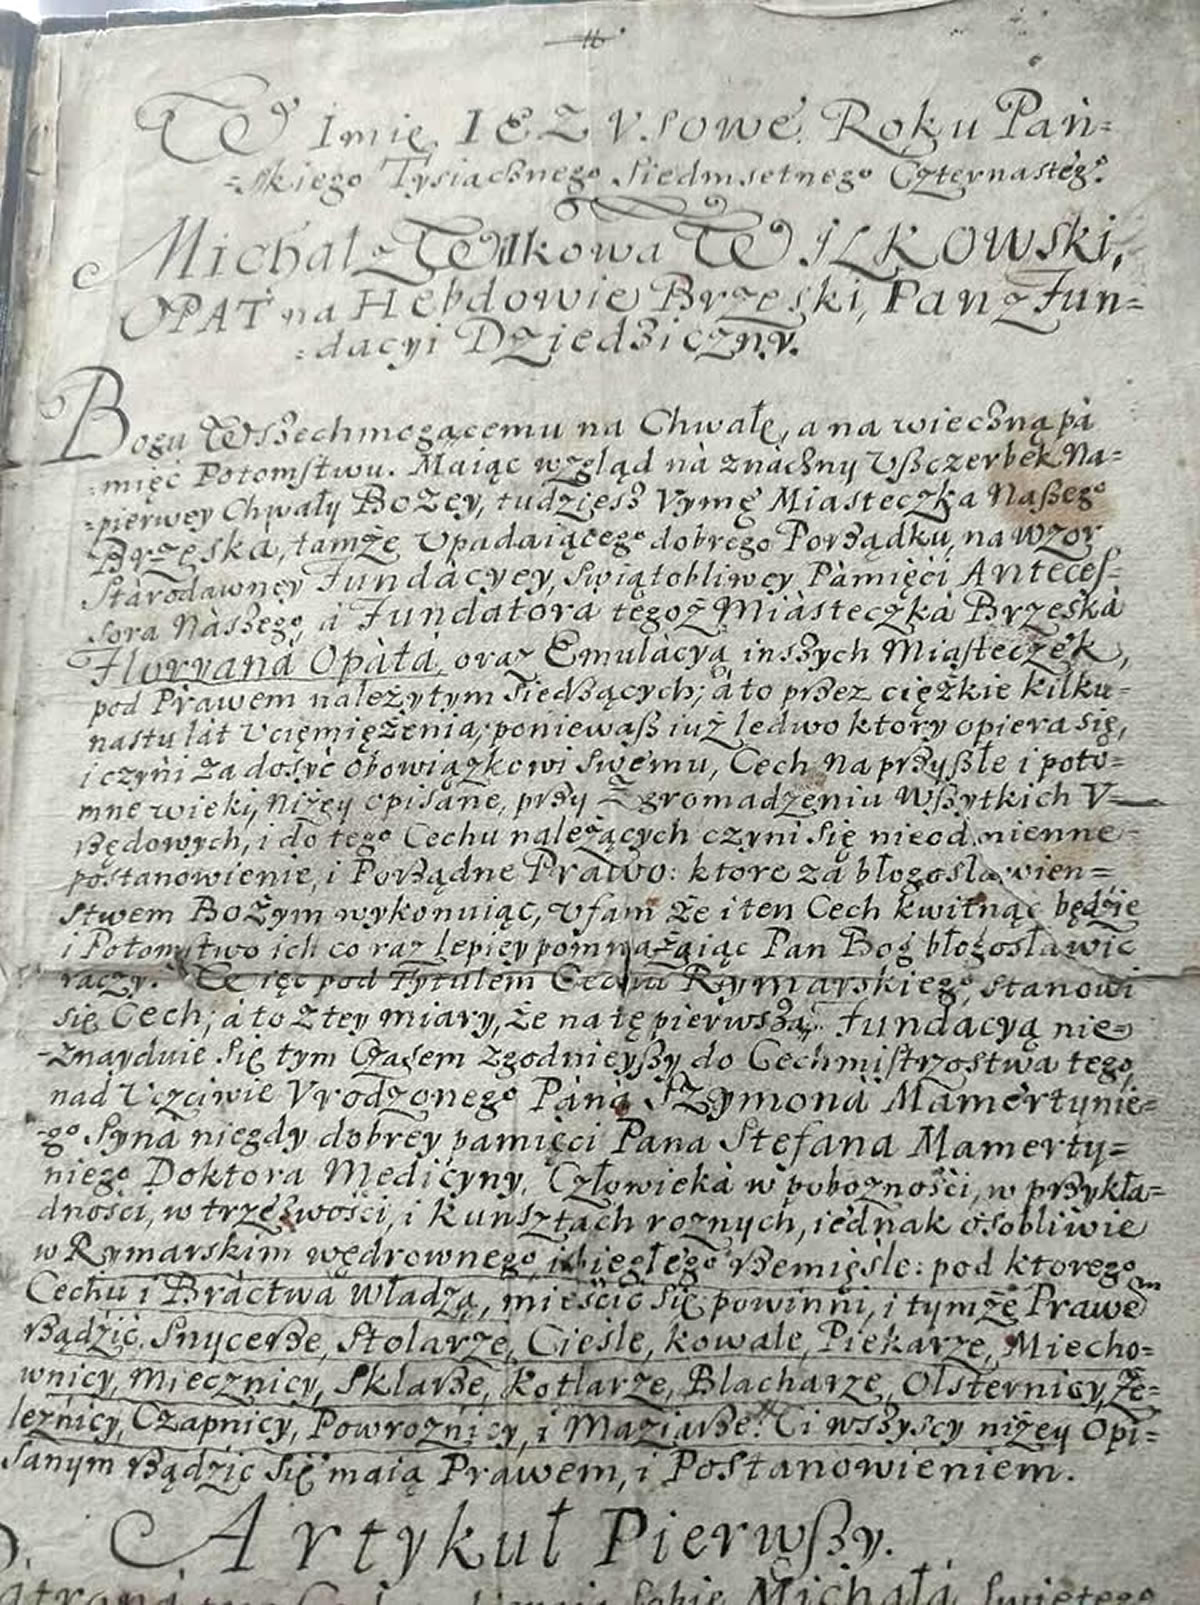 W Imię IEZVSowe Roku Pań=
=skiego Tysiącznego Siedmsetnego Czternasteg°.
Michał z Wilkowa WILKOWski,
OPAT na Hebdowie Brzeski, Pan z Fun=
=dacyi Dziedziczny.
Bogu Wszechmogącemu na Chwałę, a na wieczną pà
=mięć Potomstwu. Maiąc wzgląd nà znàczny Vszczerbek Na=
=pierwey Chwały Bożey, tudziesz Vymę Miasteczka Naszeg°
Brzeska, tamże Vpadaiąceg° dobrego Porządku, na wzor
Stàrodawney Fundàcyey, Swiątobliwey Pàmięci Anteces=
sora Nàszeg°, à Fundatorà tegoż Miàsteczkà Brzeskà
Floryanà Opàtà, oraz Emulàcyą inszych Miasteczek,
pod Prawem należytym siedzących; à to przez ciężkie kilku=
nastu làt Vciemiężenia, poniewasz iuż ledwo ktory opiera się,
i czyni zadosyć obowiązkowi swemu, Cech na przyszłe i poto=
mne wieki, niżey opisane, przy Zgromadzeniu Wszytkich V=
rzędowych, i do tego Cechu należących czyni się nieodmienne
postanowienie, i Porządne Prawo: ktore za błogosławien=
stwem Bożym wykonuiąc, Vfam że i ten Cech kwitnąć będzie
i Potomstwo ich co raz lepiey pomnażaiąc Pan Bog błogosławić
raczy. Więc pod Tytułem Cechu Rymarskiego, stanowi
się Cech; à to z tey miary, że na tę pierwszą Fundacyą nie=
=znayduie się tym Czasem zgodnieyszy do Cechmistrzostwa tego,
nad Vczciwie Vrodzoneg° Pànà Szymonà Mamertynie=
=g° Synà niegdy dobrey pamięci Pana Stefana Mamerty=
niego Doktora Medicyny, Człowiekà w pobożności, w przykła=
dności, w trzeźwości, i kunsztach roznych, iednak osobliwie
w Rymarskim wędrownego, i biegłego Rzemieśle: pod ktorego
Cechu i Bràctwà władzą, mieścić się powinni, i tymże Prawem
Rządzić. Snycerze, Stolarze, Cieśle, kowale, Piekarze, Miecho=
wnicy, Miecznicy, Sklarze, Kotlarze, Blacharze, Olsternicy, Że=
leźnicy, Czapnicy, Powroźnicy, i Maziarze. Ci wszyscy niżey Opi=
sanym Rządzić się maią Prawem, i Postanowieniem.
Artykuł Pierwszy.
sobie Michała Swiętego